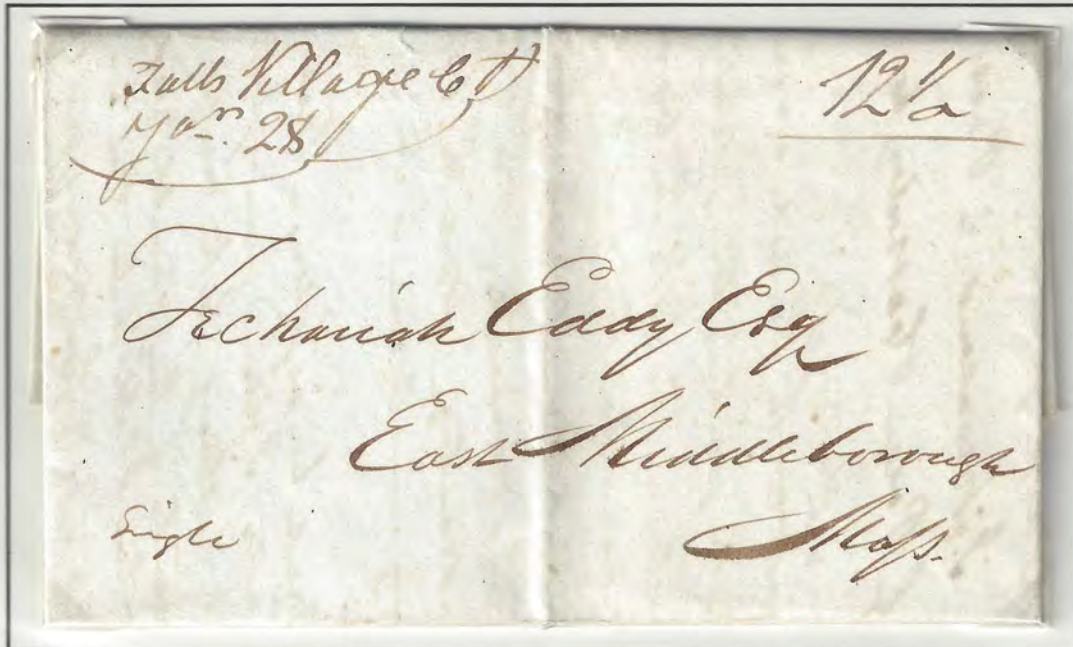 Falls Village Ct
Jan. 28
12 1/2
Zechariah Eddy Esq
East Middleborough
Mass.
Single